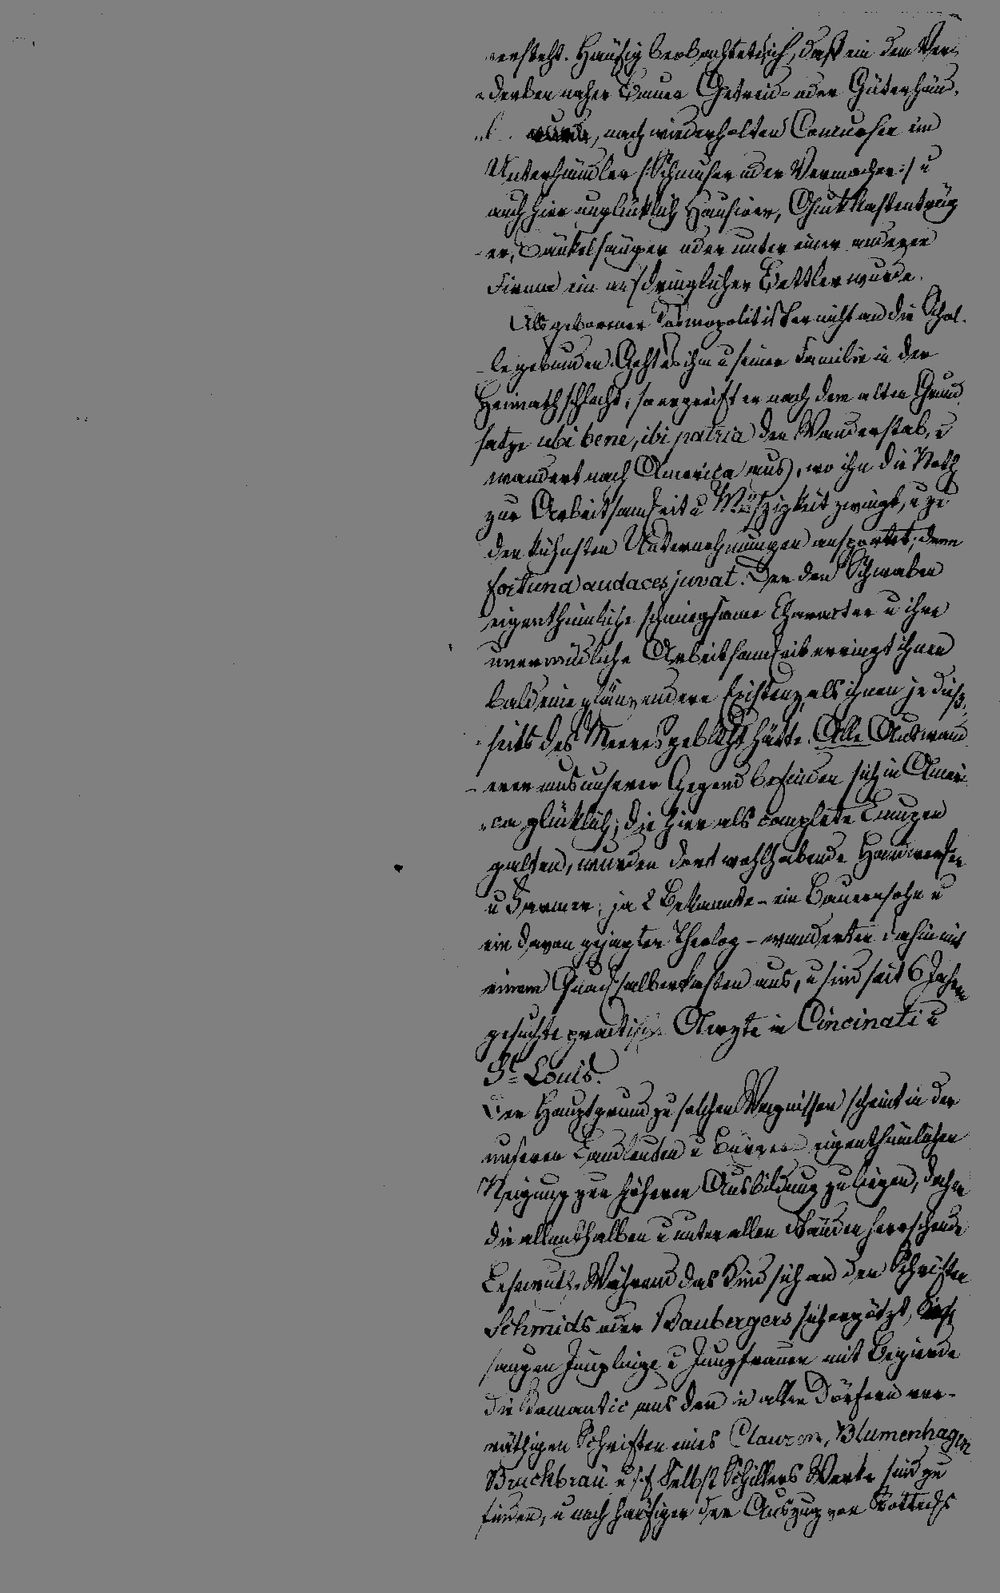 versteht. Häufig beobachtet sich, daß ein dem Ver-
derben naher Bauer Getreid- oder Güterhänd-
wurde, nach wiederholten Concursen ein
Unterhändler /:Schmuser oder Vermacher:/ u
auch hier unglücklich Hausirer, Guckkastenträg
-er, Bänkelsänger oder unter einer anderen
Firma ein aufdringlicher Bettler wurde.
Als geborener Cosmopolit ist er nicht an die Schol-
-le gebunden. Geht es ihm u seiner Familie in der
Heimath schlecht, so ergreift er nach dem alten Grund
satze ubi bene, ibi patria den Wanderstab, u
wandert nach America aus, wo ihn die Noth
zur Arbeitsamkeit u Mäßigkeit zwingt, u zu
den kühnsten Unternehmungen anspornt, denn
fortuna audaces juvat. Der den Schwaben
eigenthümliche schmiegsame Character u ihre
unermüdliche Arbeitsamkeit erringt ihnen
bald eine glänzendere Existenz, als ihnen je dieß-
-seits des Meeres geblüht hätte. Alle Auswand
-erer aus unserer Gegend befinden sich in Ameri
-ca glücklich; die hier als complete Lumpen
galten, wurden dort wohlhabende Handwerker
u Farmer; ja 2 Bekannte - ein Bauernsohn u
ein davon gejagter Theolog - wanderten dahin mit
einem Quacksalberkasten aus, u sind seit 6 Jahren
gesuchte practische Aerzte in Cincinati u
St. Louis.
Der Hauptgrund zu solchen Wagnissen scheint in der
unseren Landleuten u Bürgern eigenthümlichen
Neigung zur höheren Ausbildung zu liegen, daher
die allenthalben u unter allen Ständen herrschende
Lesewuth. Während das Kind sich an den Schriften
Schmids oder Baubergers sich ergötzt,
saugen Jünglinge u Jungfrauen mit Begierde
die Romantic aus den in allen Dörfern vor-
räthigen Schriften eines Clauren, Blumenhagen
Bruckbräu u s f Selbst Schillers Werke sind zu
finden, u noch häufiger der Auszug von Rottecks